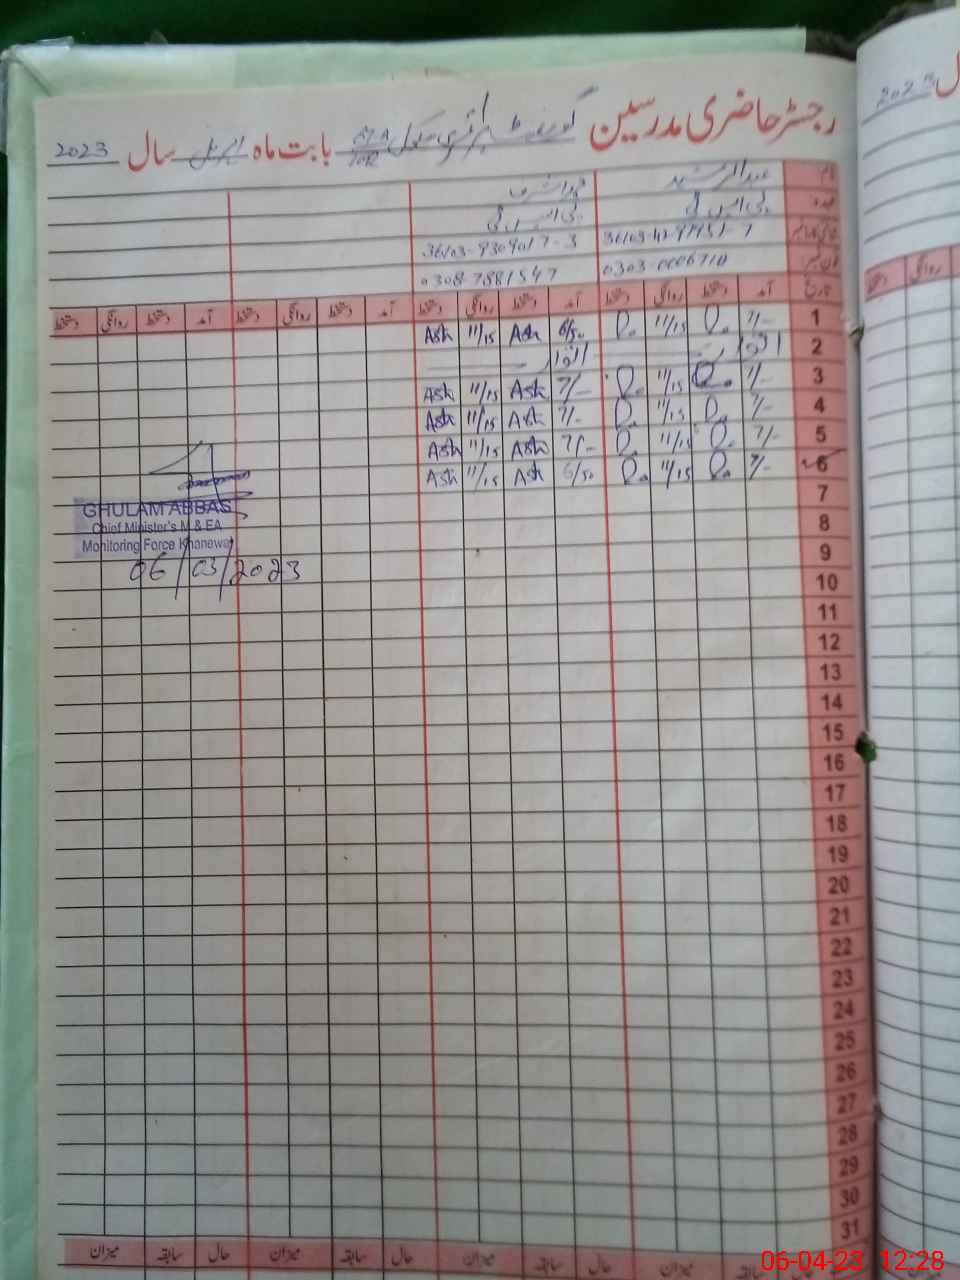 رجسٹر حاضری مدرسین گورنمنٹ پرائمری سکول بابت ماہ اپریل سال 2023
نام عبدالرشید محمد اشرف
عہدہ پی ایس ٹی پی ایس ٹی
36103-9309017-3
فون نمبر 0303-0006710 0308-7881547
تاریخ آمد دستخط روانگی دستخط آمد دستخط روانگی دستخط آمد دستخط روانگی دستخط آمد دستخط روانگی دستخط
1 7/- 11/15 6/50 Ash 11/15 Ash
2 اتوار اتوار
3 7/- 11/15 7/- Ash 11/15 Ash
4 7/- 11/15 7/- Ash 11/15 Ash
5 7/- 11/15 7/- Ash 11/15 Ash
6 7/- 11/15 6/50 Ash 11/15 Ash
7
8
9
10
11
12
13
14
15
16
17
18
19
20
21
22
23
24
25
26
27
28
29
30
31
GHULAM ABBAS
Chief Minister's M & EA
Monitoring Force Khanewal
06/03/2023
حال سابقہ میزان حال سابقہ میزان حال سابقہ میزان میزان
روانگی
06-04-23 12:28